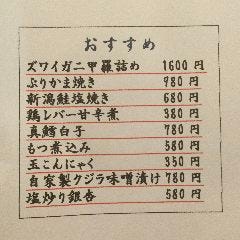 おすすめ
ズワイガニ甲羅詰め 1600円
ぶりかま焼き 980円
新潟鮭塩焼き 680円
鶏レバー甘辛煮 380円
真鱈白子 780円
もつ煮込み 580円
玉こんにゃく 350円
自家製クジラ味噌漬け 780円
塩炒り銀杏 580円